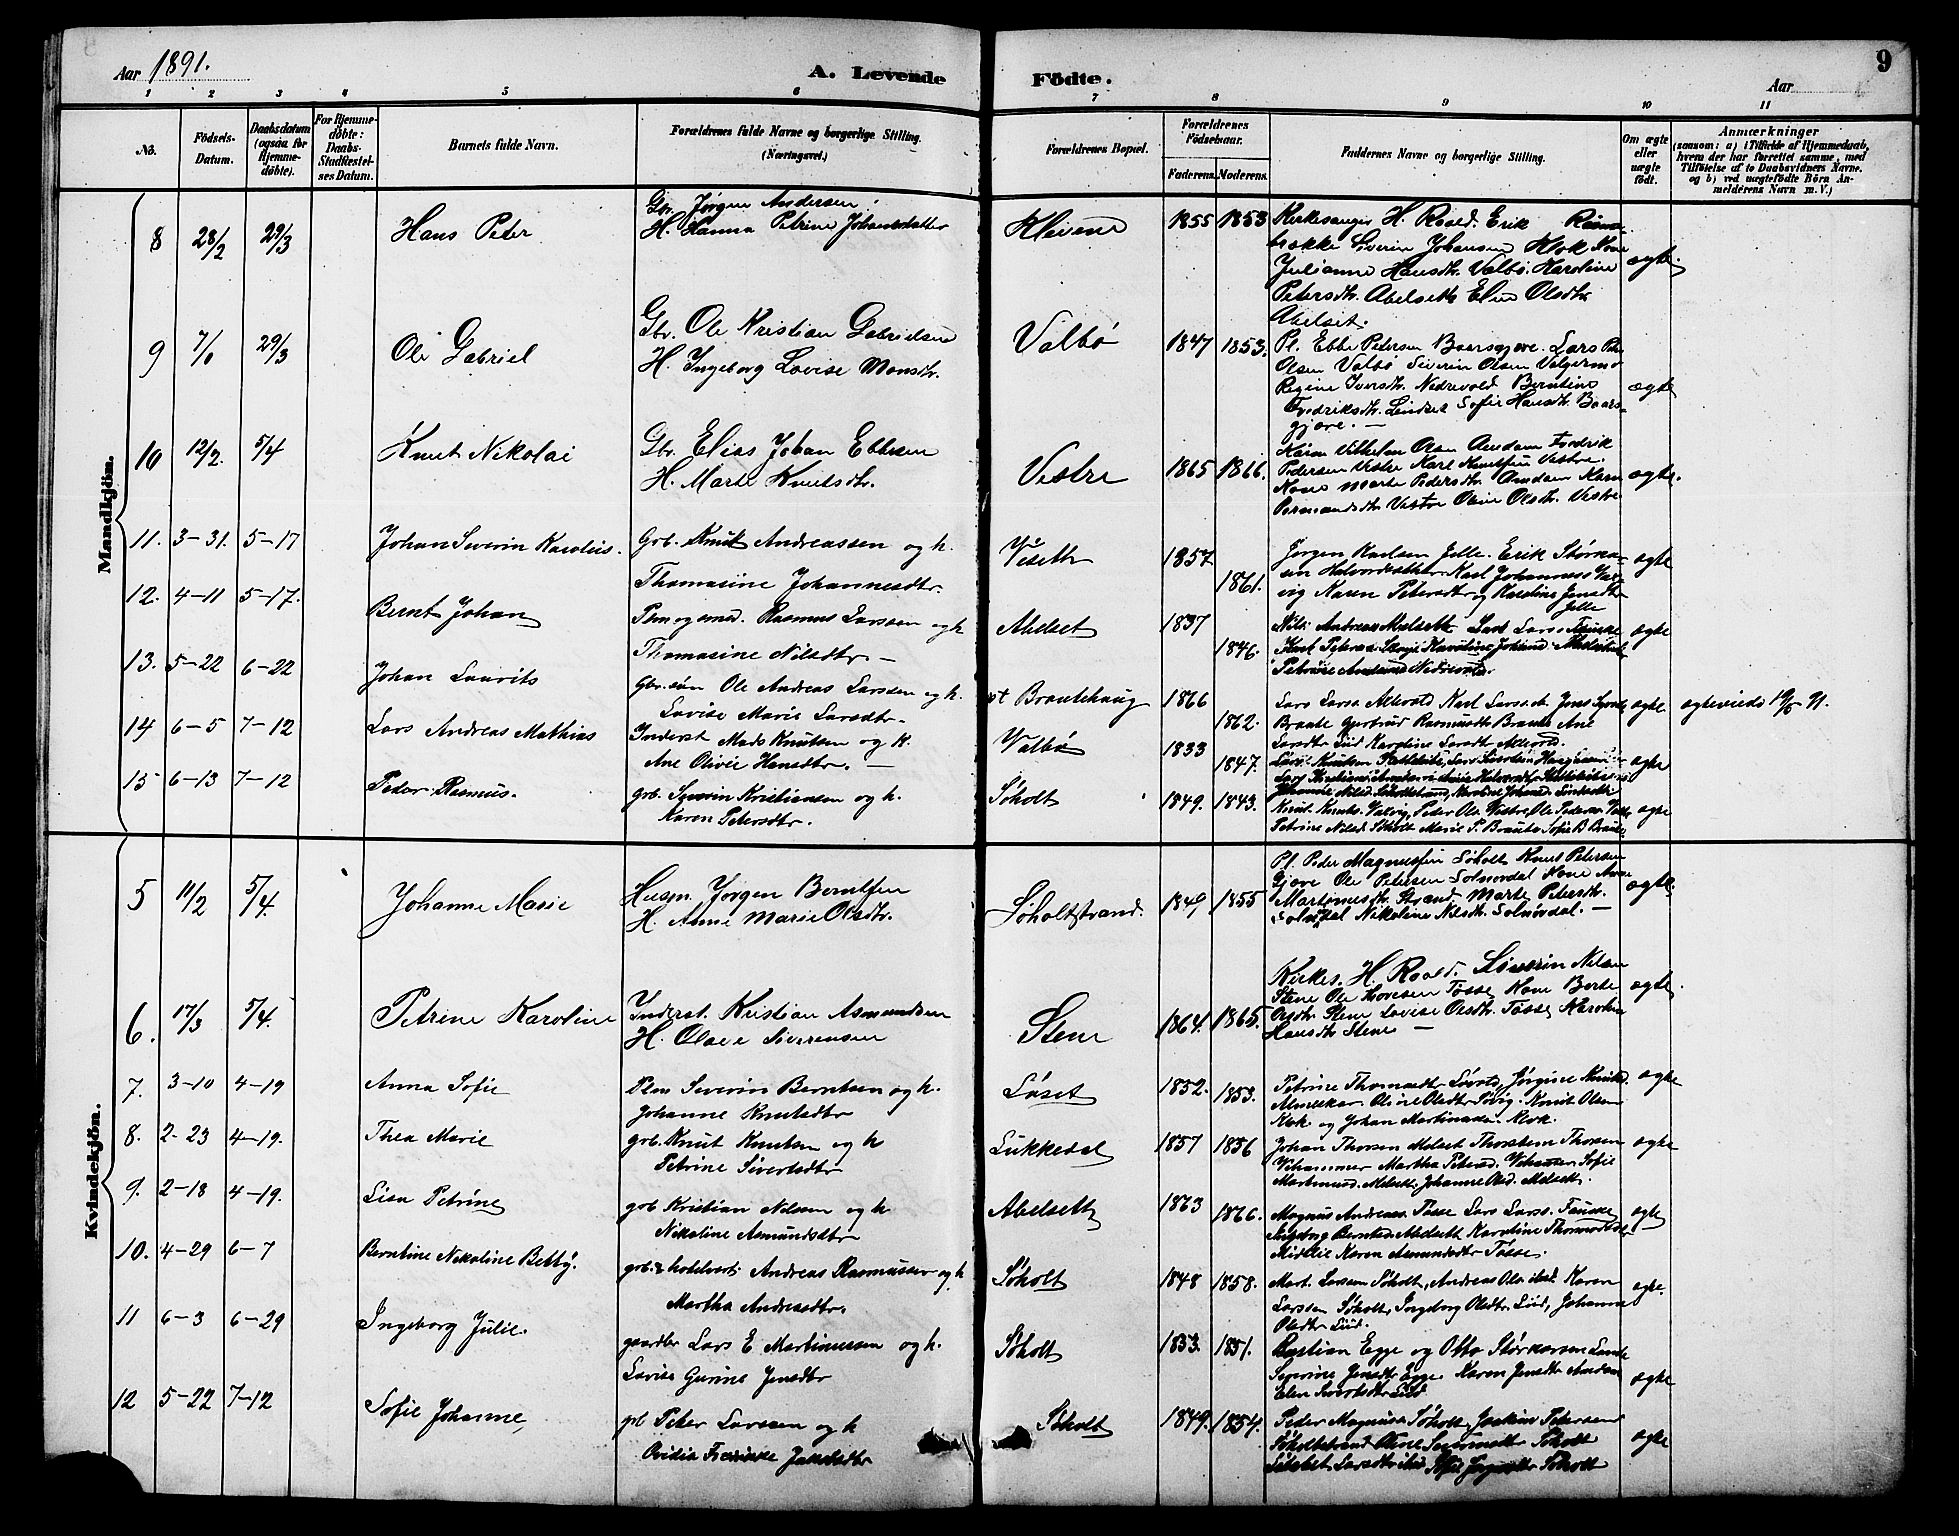 Aar 1891.
A. Levende
Födte.
Aar
9
1 2 3 4 5 6 7 8 9 10 11
No.
Födsels-Datum.
Daabsdatum (ogsaa for Hjemme-döbte).
For Hjemme-döbte: Daabs-Stadfæstel-ses Datum.
Barnets fulde Navn.
Forældrenes fulde Navne og borgerlige Stilling. (Næringsvei.)
Forældrenes Bopæl.
Forældrenes Födselsaar.
Faderens. Moderens.
Faddernes Navne og borgerlige Stilling.
Om ægte eller uægte födt.
Anmærkninger
(saasom: a) i Tilfælde af Hjemmedaab, hvem der har forrettet samme, med Tilföielse af to Daabsvidners Navne. og b) ved uægtefödte Börn An-melderens Navn m. V.)
Mandkjön.
8 28/2 29/3 Hans Peter
Gbr. Jørgen Andersen
H. Hanna Petrine Johannesdatter
Klevene 1855 1853
Kirkesanger H. Roald. Erik
Severin Johansen Klok Kone
Julianne Hansdtr. Valbö. Karoline
Petersdtr. Abelseth Elen Olsdtr.
Abelset.
ægte.
9 29/3 Ole Gabriel
Gbr. Ole Kristian Gabrielsen
H. Ingeborg Lovise Monsdtr.
Valbø 1847 1853.
Pl. Ebbe Petersen Baarsgjøre. Lars Peter
Olsen Valbø Severin Olsen Valgermo
Regine Iversdtr. Nedrevold Berntine
Fredriksdtr. Lindset Sofie Hansdtr. Baars-
gjøre. —
ægte
10 12/2. 5/4 Knut Nikolai
Gbr. Elias Johan Ebbesen
H. Marte Knutsdtr.
Vestre 1865 1866.
Vilhelm Olsen Amdam Fredrik
Pedersen Vestre Karl Knutsen Vestre.
Kone Marte Pedersdtr. Amdam Karen
Vestre Oline Olsdtr. Vestre
ægte.
11. 3-31. 5-17 Johan Severin Karolius.
Grb. Knut Andreassen og h.
Thomasine Johannesdtr.
Viseth 1857 1861.
Jørgen Karlsen Jelle. Erik Størka-
sen Halvordsæther Karl Johannes Val-
vig Karen Petersdtr og Karoline Jensdtr
Jelle
ægte
12. 4-11 5-17. Bernt Johan
Plm og smed. Rasmus Larssen og h
Thomasine Nilsdtr —
Abelset 1837 1846.
Nils Andreas Melseth Lars Larss. Fauske
Karl Peters. Stenje Karoline Johansd. Melseth
Petrine Amundsd Nedrevold.
ægte
13. 5-22 6-22 Johan Laurits
Gbr.søn Ole Andreas Larssen og h.
Lovise Marie Larsdtr.
pt Brautehaug 1866 1862.
Braute Gjertrud Rasmusdtr Braute Ane
Larsdtr Liid Karoline Larsdtr
ægte
ægteviede 19/5 91.
14 6-5 7-12 Lars Andreas Mathias
Inderst Mads Knutsen og h.
Ane Olivie Hansdtr. —
Valbø 1833 1847.
ægte
15 6-13 7-12 Peder Rasmus.
grb. Severin Kristiansen og h.
Karen Petersdtr.
Søholt 1849. 1843.
Knut Knuts. Valvig, Peder Ols. Vestre, Ole Pedersen
Petrine Nilsd Søholt Marie P. Braute Sofie B Braute
ægte
Kvindekjön.
5 11/2 5/4. Johanne Marie
Husm. Jørgen Berntsen
H. Anne Marie Olsdtr.
Søholtstrand. 1849 1855
Pl. Peder Magnussen Søholt Knut Petersen
Gjøre Ole Petersen Solnørdal Kone Ane
Martinusdtr. Strand Marte Petersdtr.
Solnørdal Nikoline Nilsdtr. Solnørdal. —
ægte.
6. 17/3 5/4. Petrine Karoline
Inderst. Kristian Asmundsen
H. Olave Siverensen
Stene 1864. 1865.
Kirkes. H. Roald. Severin Nilsen
Stene Ole Thoresen Tosse Kone Berte
Olsdtr. Stene Lovise Olsdtr. Tosse Karoline
Hansdtr Stene —
ægte.
7. 3-10 4-19 Anna Sofie
Plm Severin Berntsen og h.
Johanne Knutsdtr
Løset 1852. 1853.
Petrine Thomasdtr Løvold, Jørgine Knutsd.
Almeskar Oline Olsdtr Søvig. Knut Olsen
Klok og Johan Martinusen Klok.
ægte
8. 2-23 4-19. Thea Marie
grb. Knut Knutsen og h
Petrine Sivertsdtr
Lukkedal 1857 1856
Johan Thorsen Melset Thorstein Thorsen
Vihammer Martha Petersd. Vihammer Sofie
Martinusd. Melseth, Johanne Olsd. Melseth.
ægte
9. 2-18 4-19. Lisa Petrine
grb Kristian Nilsen og h
Nikoline Asmundsdtr
Abelseth 1863 1866.
Magnus Andreass. Tosse Lars Larss. Fauske
Ingeborg Berntsd. Abelseth Karoline
Midtlie Karen Asmundsdtr Tosse.
ægte
10. 4-29 6-7 Berntine Nikoline Betty.
grb. & hotelvert Andreas Rasmussen og h
Martha Andreasdtr.
Søholt 1848 1858.
Mart. Larssen Søholt, Andreas Ols. ibid. Karen
Larssen Søholt, Ingeborg Olsdtr. Liid, Johanna
Olsdtr Liid.
ægte.
11 6-3 6-29 Ingeborg Julie.
gaardbr Lars E Martinussen og h.
Lovise Gurine Jensdtr
Søholt 1853. 1851.
Bastian Egge og Otto Størkarsen Lande
Severine Jensdtr Egge Karen Jensdtr Amdam
Elen Sivertsdtr Liid
ægte
12 5-22 7-12 Sofie Johanne,
pl Peter Larssen og h
Ovidia Fredrikke Jakobsdtr
Søholt 1849. 1854.
Peder Magnuss Søholt, Joakim Petersen
Søholtstrand Oline Søholt
Larsdtr ibid Søholt
ægte